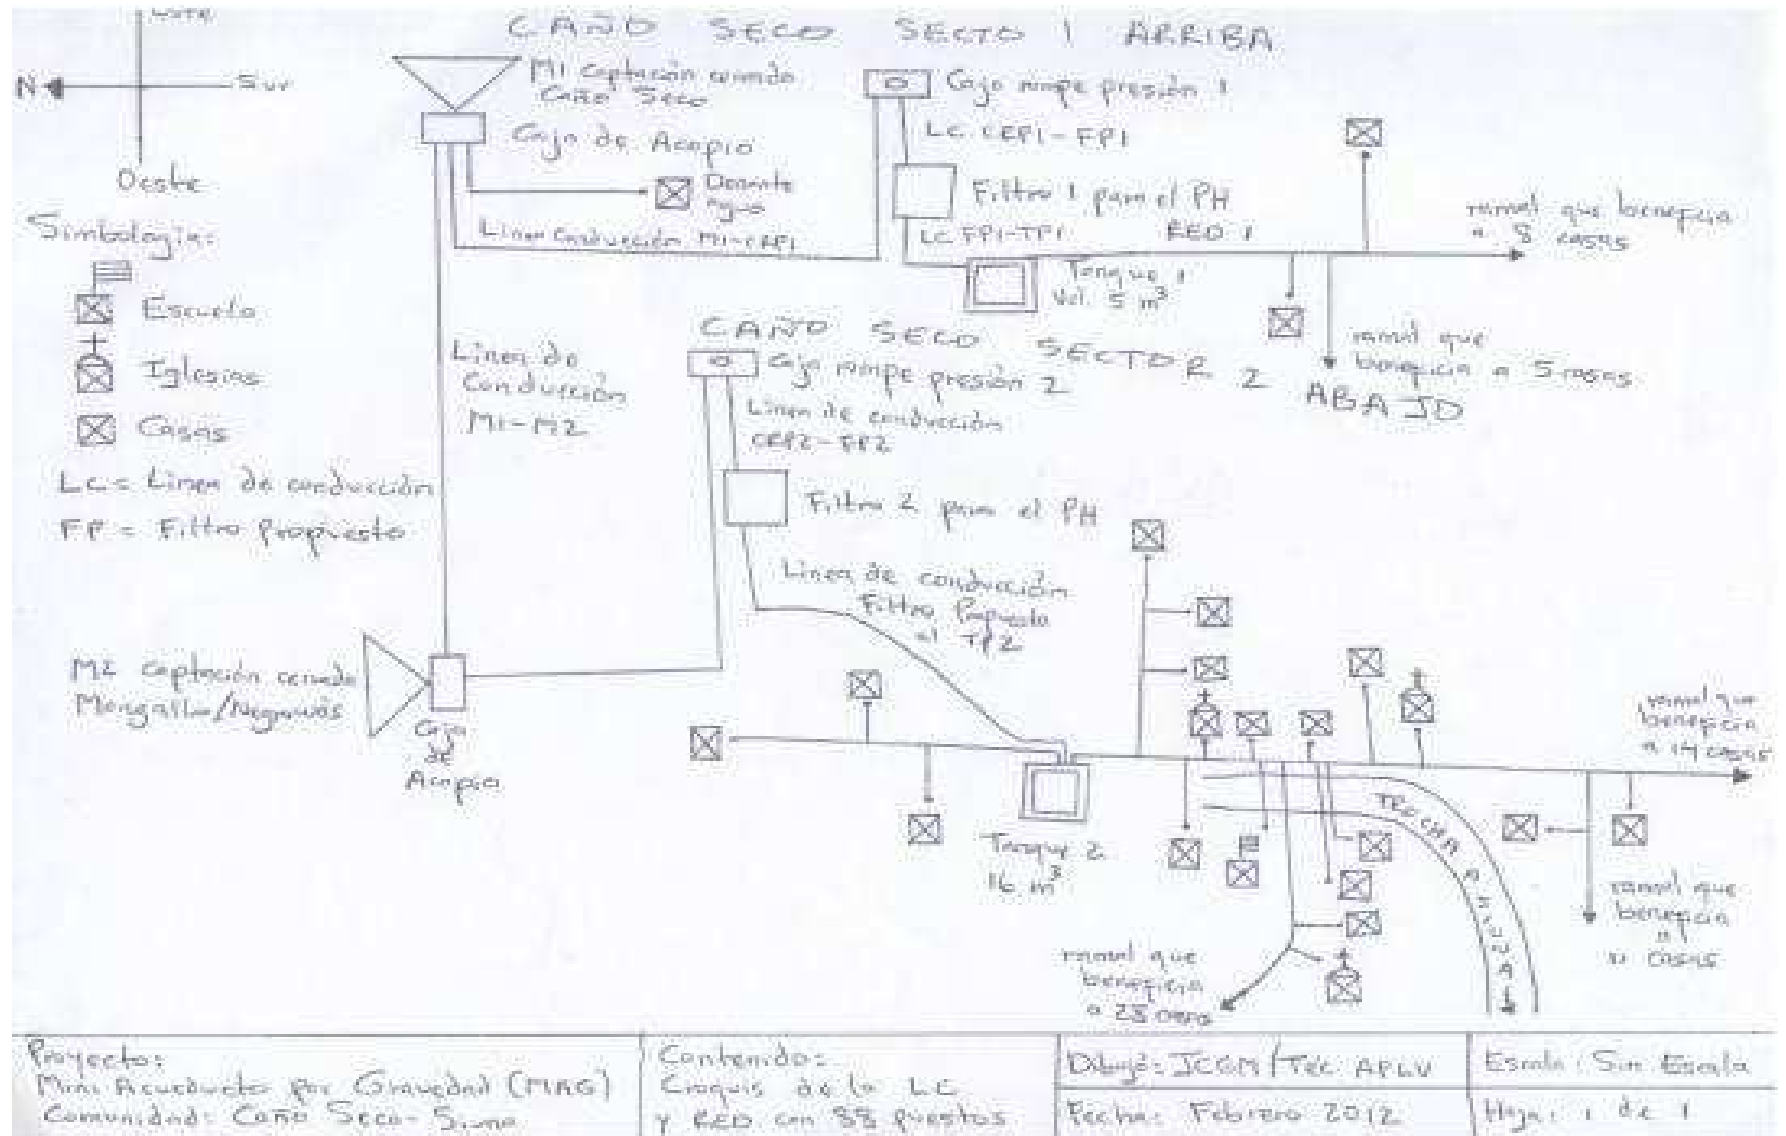 CAÑO SECO SECTO 1 ARRIBA
N
Sur
Oeste
M1 Captación cerrada
Caño Seco
Caja de Acopio
Caja rompe presión 1
LC CRP1-FP1
Filtro 1 para el PH
LC FP1-TP1
RED 1
Línea Conducción M1-CRP1
Tanque 1
Vol. 5 m³
ramal que beneficia
a 8 casas
ramal que
beneficia a 5 casas
Simbología:
Escuela
Iglesias
Casas
LC = Línea de conducción
FP = Filtro Propuesto
Línea de
Conducción
M1-M2
CAÑO SECO SECTOR 2 ABAJO
Caja rompe presión 2
Línea de conducción
CRP2-FP2
Filtro 2 para el PH
Línea de conducción
Filtro Propuesto
al TP2
M2 Captación cerrada
Caja
de
Acopio
Tanque 2
16 m³
ramal que
beneficia
a 14 casas
ramal que
beneficia
a
casas
ramal que
beneficia
a 28 casas
TROCHA
Proyecto:
Mini Acueducto por Gravedad (MAG)
Comunidad: Caño Seco-
Contenido:
Croquis de la LC
y RED con 88 puestos
Dibujó: JCGM/Tec. APLV
Fecha: Febrero 2012
Escala: Sin Escala
Hoja: 1 de 1